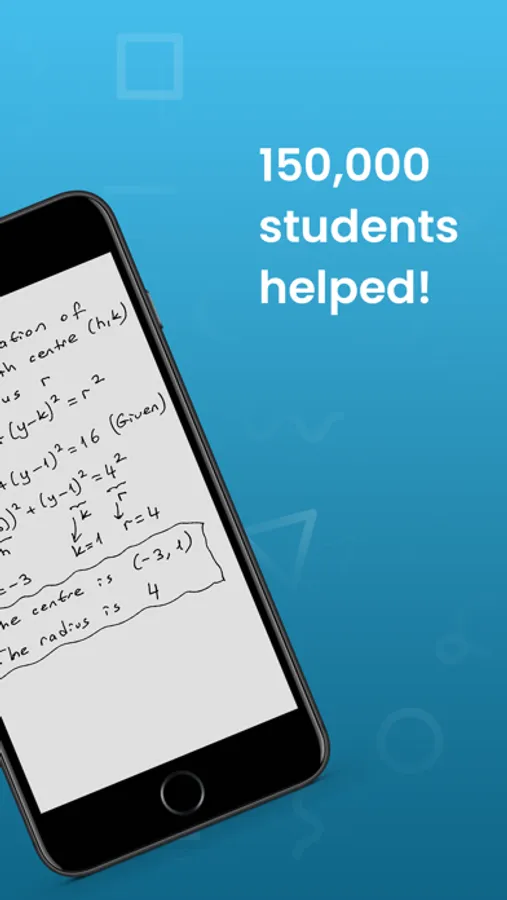 150,000
students
helped!
ation of
th centre (h,k)
us r
+(y-k)² = r²
+(y-1)² = 16 (Given)
))² + (y-1)² = 4²
h k r
k=1 r=4
=-3
he centre is (-3, 1)
The radius is 4